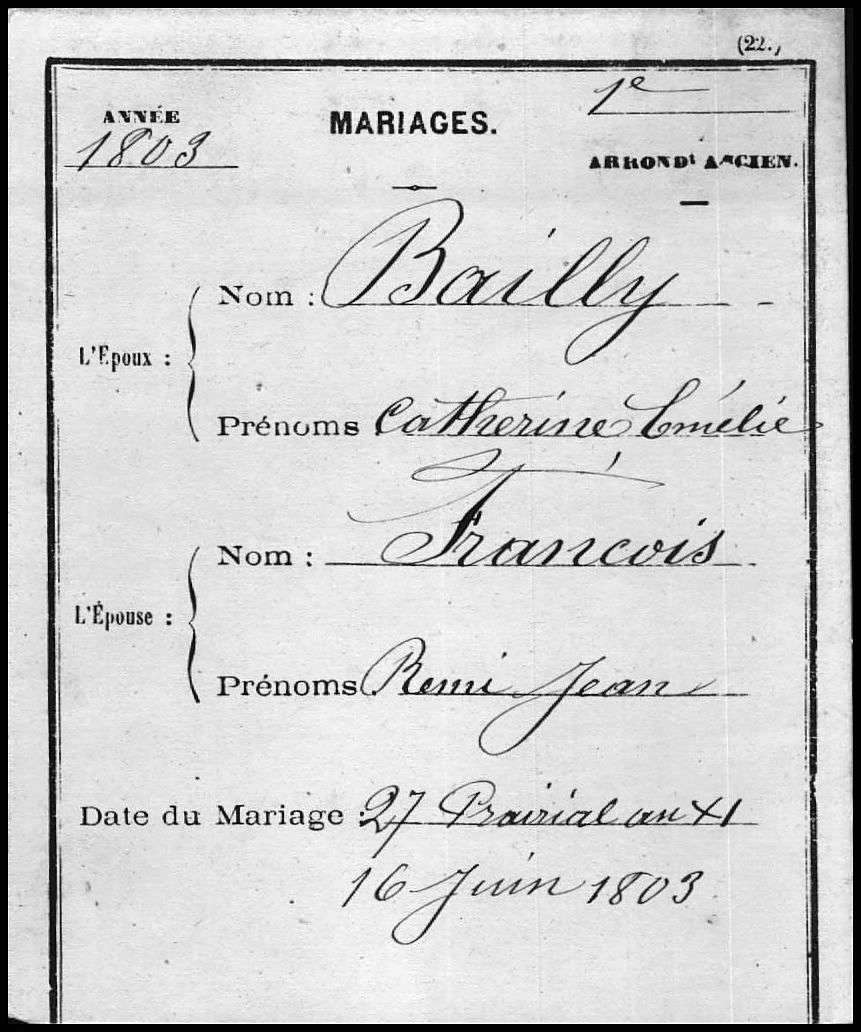 (22.)
ANNÉE
1803
MARIAGES.
1e
ARRONDt ANCIEN.
Nom : Bailly
L'Époux :
Prénoms Catherine Emélie
Nom : Francois
L'Épouse :
Prénoms Remi Jean
Date du Mariage : 27 Prairial an XI
16 Juin 1803